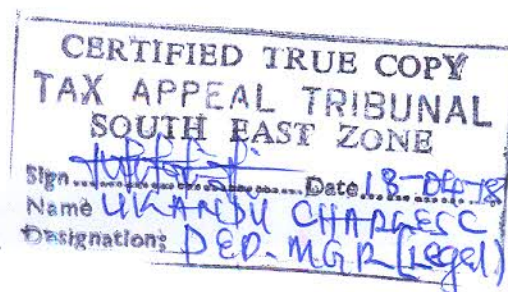 CERTIFIED TRUE COPY
TAX APPEAL TRIBUNAL
SOUTH EAST ZONE
Sign.....................Date 18-04-18
Name UKANDU CHARLES C
Designation: DEP. MGR (Legal)